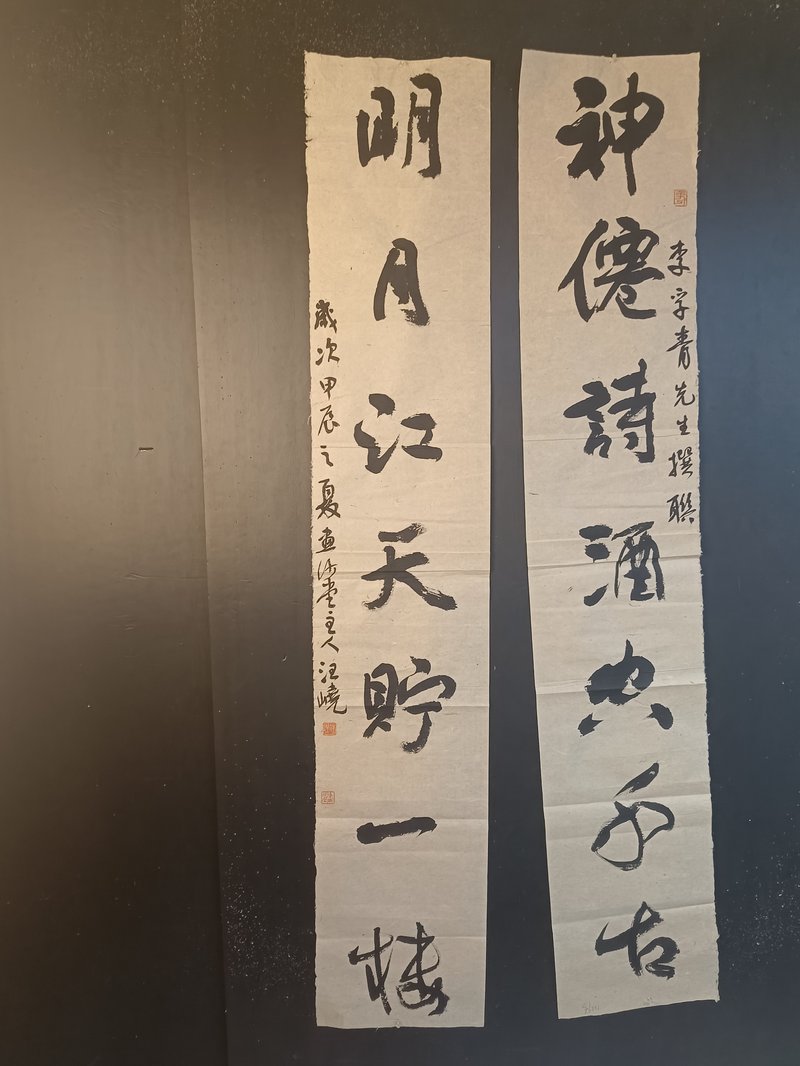 神僊詩酒空千古
李孚青先生撰聯
明月江天貯一樓
歲次甲辰之夏畫沙堂主人汪嶢